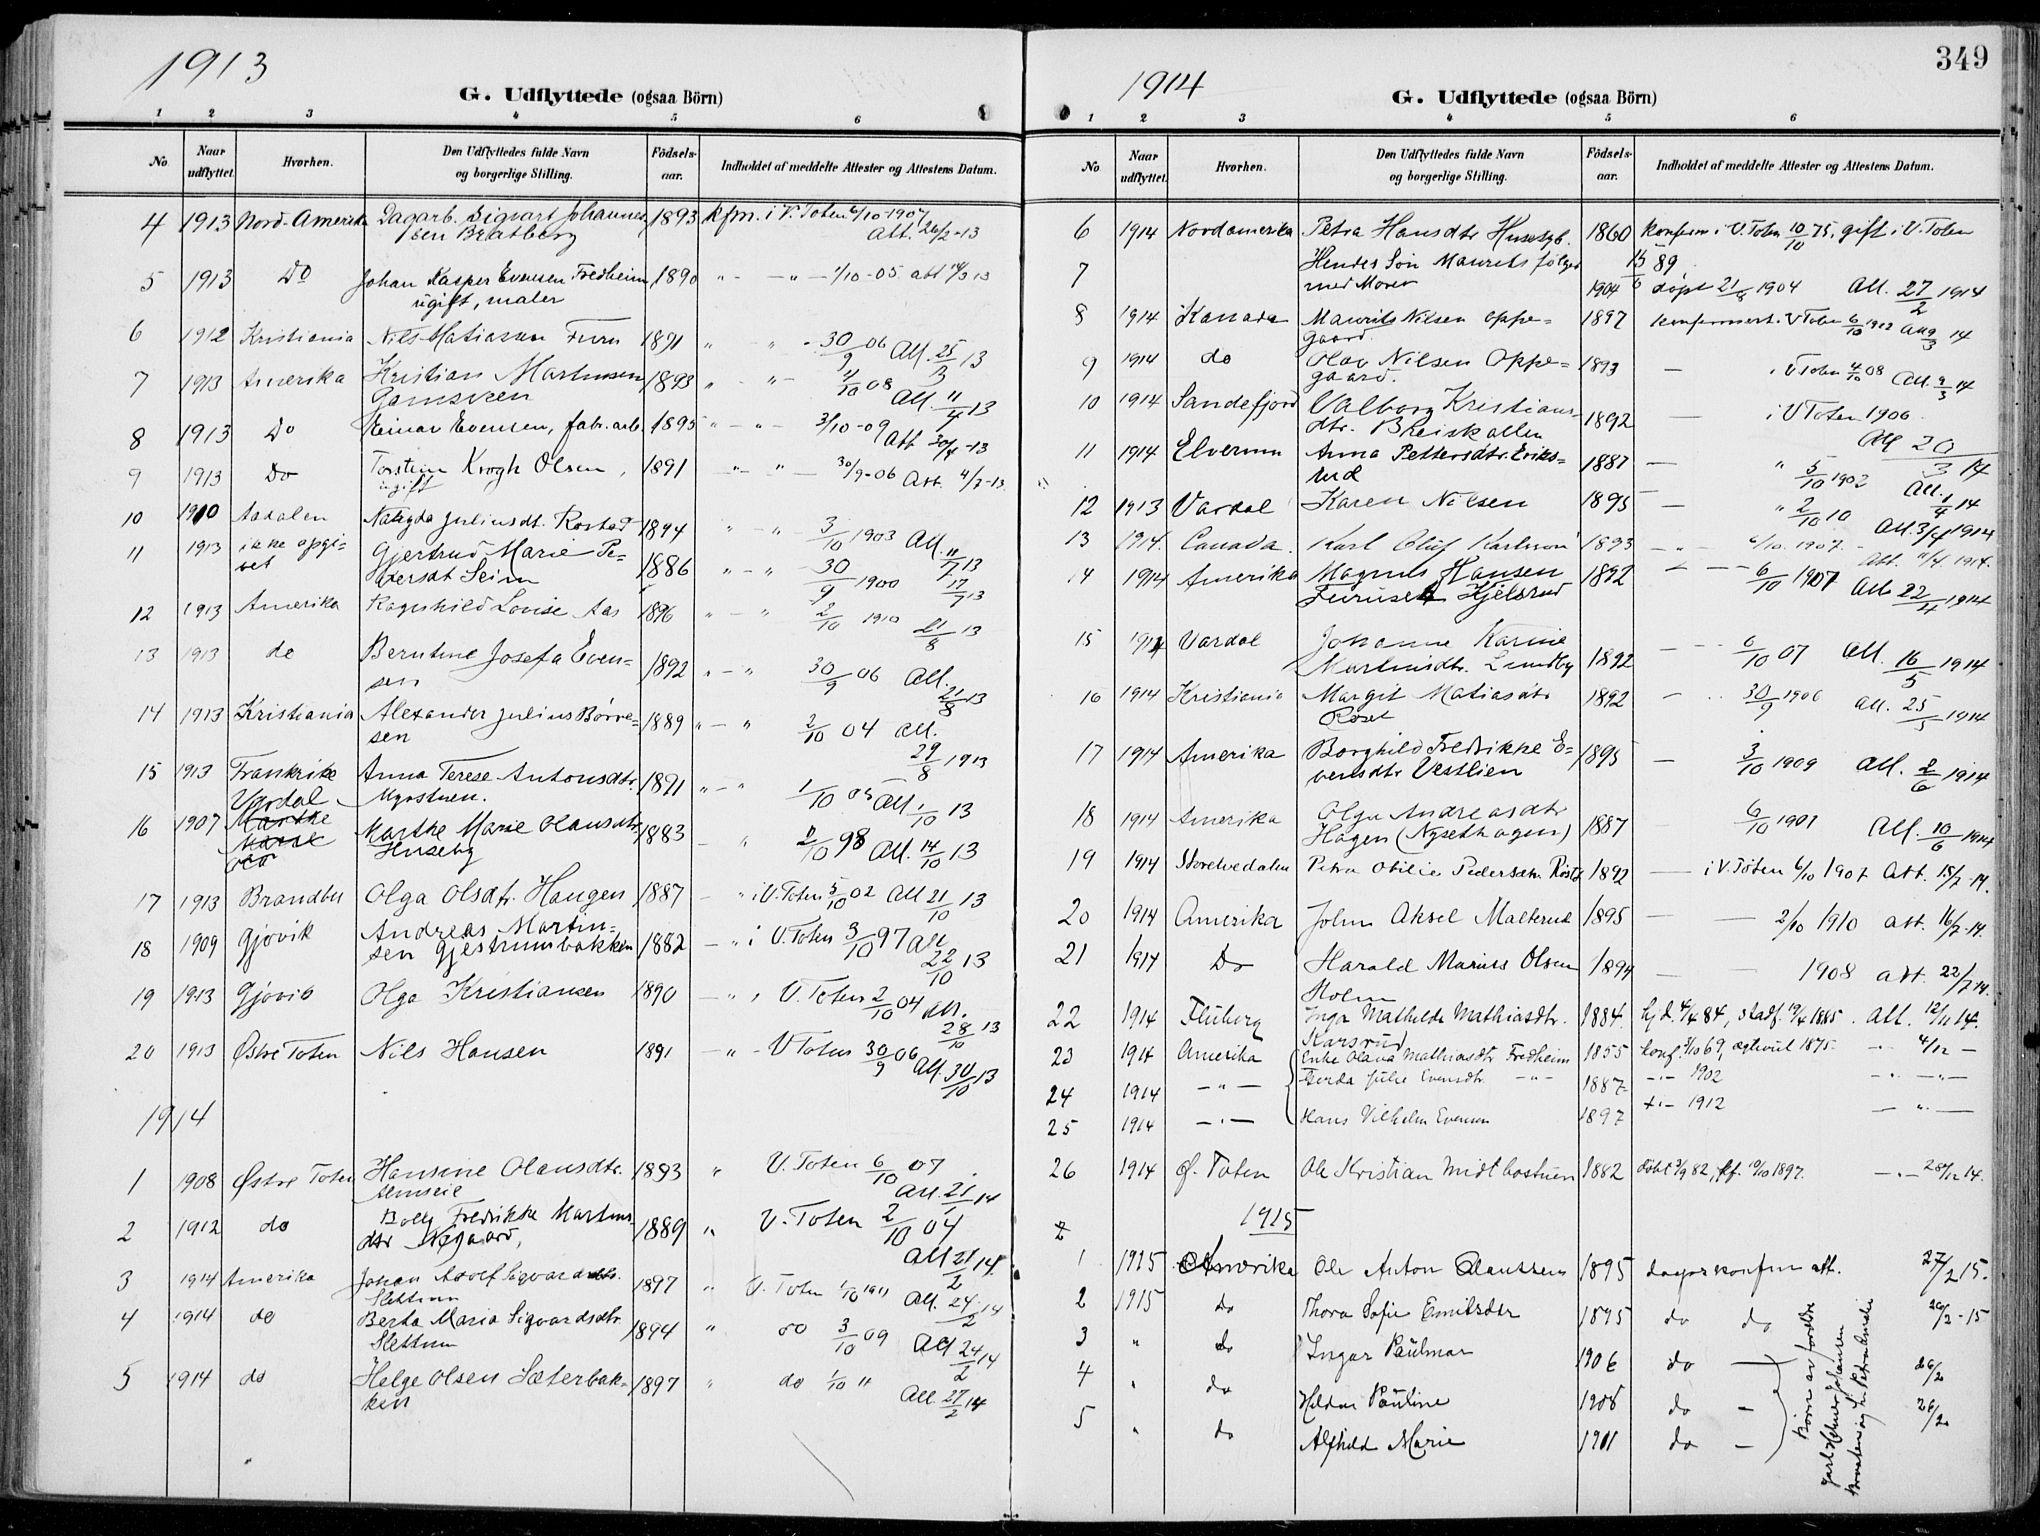 1913
G. Udflyttede (ogsaa Börn)
1 2 3 4 5 6
No Naar udflyttet. Hvorhen. Den Udflyttedes fulde Navn og borgerlige Stilling. Födsels-aar. Indholdet af meddelte Attester og Attestens Datum.
4 1913 Nord-Amerika Dagarb. Sigvart Johannes- 1893 kfm. i V. Toten 6/10-1907
sen Bratberg Att. 26/2-13
5 1913 Do Johan Kasper Evensen Fredheim 1890 " - " - 1/10-05 att 14/3 13
ugift, maler
6 1912 Kristiania Nils Matiassen Furu 1891 " " - 30/9 06 Att. 25/3 13
7 1913 Amerika Kristian Martinsen 1893 " - " - 4/10 08
Gamsveen Att. 11/4 13
8 1913 Do Einar Evensen, fabr. arb. 1895 " - " - 3/10-09 Att 30/4-13
9 1913 Do Torstein Krogh Olsen, 1891 " - " - 30/9-06 Att. 4/7-13.
ugift
10 1910 Aadalen Magda Juliusdt. Rostad 1894 " - " 3/10 1903 Att. 11/7 13
11 1913 ikke opgi- Gjertrud Marie Pe- 1886 " - " 30/9 1900 17/7 13
vet dersdt Seim
12 1913 Amerika Ragnhild Lovise Aas 1896 " - " 2/10 1910 21/8 13
13 1913 do Berntine Josefa Even- 1892 " - " 30/9 06 Att.
sen 21/8 13
14 1913 Kristiania Alexander Julius Børre- 1889 " - " 2/10 04 Att.
sen 29/8 1913
15 1913 Frankrike Anna Terese Antonsdtr. 1891 " - " 1/10 05 Att 1/10 13
Myrstuen.
Vardal
16 1907 Marthe Marie Olausdtr. 1883 - " 2/10 98 Att. 14/10 13
Huseby
17 1913 Brandbu Olga Olsdtr. Haugen 1887 - " i V. Toten 5/10 02 Att 21/10 13
18 1909 Gjøvik Andreas Martin- 1882 - " i V. Toten 3/10 97 Att
sen Gjestrumbakken 22/10 13
19 1913 Gjøvik Olga Kristiansen 1890 - " , V. Toten 2/10 04 Att.
28/10 13
20 1913 Østre Toten Nils Hansen 1891 - " - V Toten 30/9 06 Att. 30/10 13
1914
1 1908 Østre Toten Hansine Olausdtr. 1893 " V. Toten 6/10 07
Att. 21/1 14
2 1912 do Bolly Fredrikke Martins- 1889 " V. Toten 2/10 04
dtr Nøgaard, Att 21/2 14
3 1914 Amerika Johan Adolf Sigvards 1897 " V. Toten 1/10 1911 Att. 24/2 14
Slettum
4 1914 do Berta Maria Sigvardsdtr 1894 " do 3/10 09 Att 24/2 14
Slettum
5 1914 do Helge Olsen Sæterbak- 1897 " do 1/10 11
ken Att. 27/2 14
349
1914
G. Udflyttede (ogsaa Börn)
1 2 3 4 5 6
No Naar udflyttet. Hvorhen. Den Udflyttedes fulde Navn og borgerlige Stilling. Födsels-aar. Indholdet af meddelte Attester og Attestens Datum.
6 1914 Nordamerika Petra Hansdtr Huseby. 1860 konfirm i V. Toten 10/10 75, gift i V. Toten
7 Hendes Søn Maurits følger 15/6 89
med Moren 1904 døpt 21/8 1904 Att. 27/2 1914
8 1914 Kanada Maurits Nilsen Oppe- 1897 konfirmert i V Toten 6/10 1912 Att 9/3 14
gaard.
9 1914 do Olav Nilsen Oppe- 1893 - i V Toten 4/10 08 Att. 9/3 14
gaard.
10 1914 Sandefjord Valborg Kristians- 1892 - i V Toten 1906
dtr. Bleiskallen Att 20/3 14
11 1914 Elverum Anna Pettersdtr. Eriks- 1887 - " 5/10 1902
rud Att. 1/4 14
12 1913 Vardal Karen Nilsen 1895 - " 2/10 10 Att. 3/4 1914
13 1914. Canada. Karl Oluf Karlsson 1893 - " - 6/10. 1907. - Att. 11/4. 1914.
14 1914 Amerika Magnus Hansen 1892 - - 6/10 1907 Att. 22/4 1914
Furuset Kjelsrud
15 1914 Vardal Johanne Karine 1892 - - 6/10 07 Att. 16/5 1914
Martinsdtr. Lundby
16 1914 Kristiania Margit Matiasdtr 1892 - 30/9 1906 Att. 25/5 1914
Roset
17 1914 Amerika Borghild Fredrikke E- 1895 - 3/10 1909 Att. 2/6 1914
vensdtr Vestlien
18 1914 Amerika Olga Andreasdtr 1887 - 6/10 1901 Att. 10/6 1914
Hagen (Nysethagen)
19 1914 Storelvedalen Petra Otilie Pedersdtr. 1892 - i V. Toten 6/10 1907 Att. 15/7-14.
20 1914 Amerika John Aksel Malterud 1895 - - 2/10 1910 att. 16/7-14.
21 1914 Do Harald Marius Olsen 1894 - - 1908 att. 22/7 14.
Holm
22 1914 Fluberg Inga Mathilde Mathiasdtr. 1884. hj.d. 4/4 84, stadf. 19/4 1885. Att. 12/11 14.
Karsrud
23 1914 Amerika Enke Olava Mathiasdtr Fredheim 1855 konf. 3/10 69, egtevid 1875. - " - 4/12 -
24 1914 - " - Gerda Julie Evensdtr. - " - 1887 - " - 1902 - " - " -
25 1914 - " - Hans Vilhelm Evensen 1897 - 1912 - " -
26 1914 Ø. Toten Ole Kristian Midtbøstuen 1882 døbt 3/9 82, kf. 10/10 1897. - " - 28/12 14.
1915
1 1915 Amerika Ole Anton Olaussen 1895 daaps konfirm att. 27/2 15.
2 1915 Do Thora Sofie Emilsdtr 1895 do do 26/2-15
3 " do Ingar Paulmar 1906 do - 26/2
4 " do Hildur Pauline 1908 do - 26/2
5 " do Alfhild Marie 1911 do -
Børn av forældre